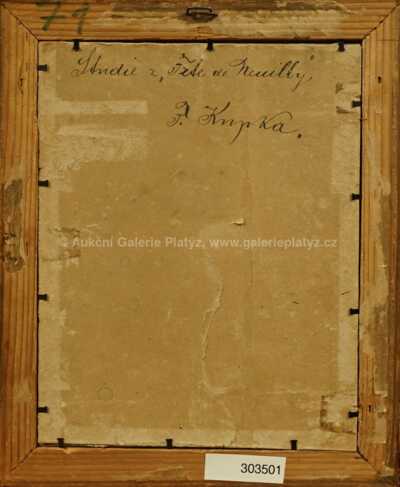 71
Studie z „Fête de Neuilly"
F. Kupka.
© Aukční Galerie Platýz, www.galerieplatyz.cz
303501